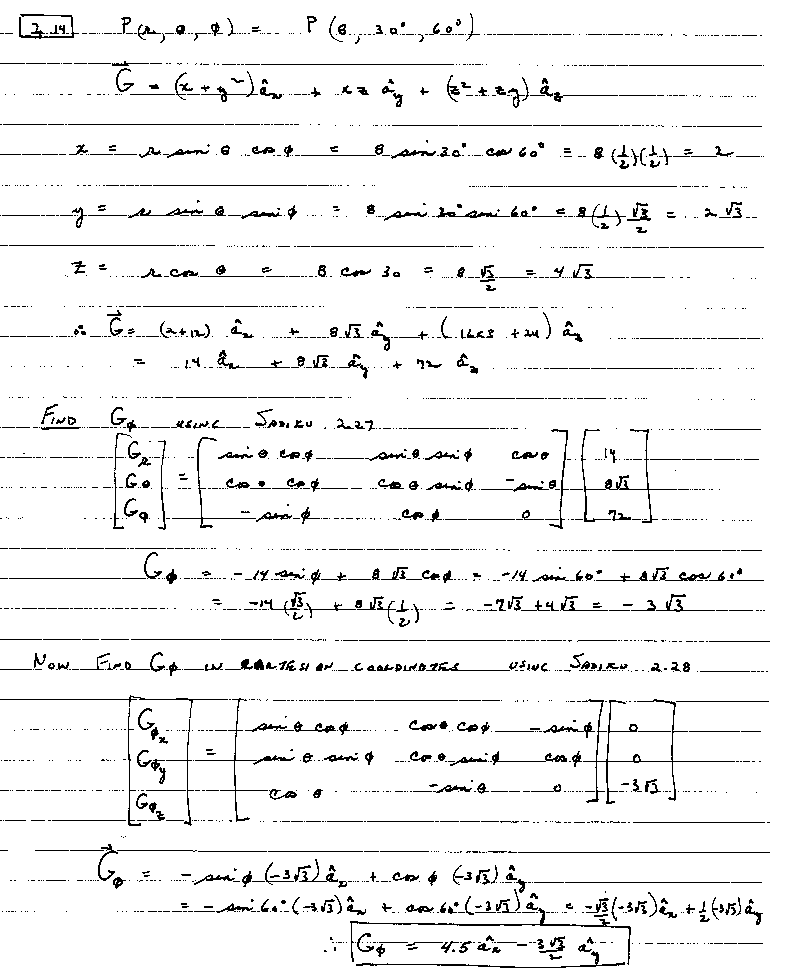 2.14 P(r, θ, φ) = P(8, 30°, 60°)
G⃗ = (x + y²) âx + xz ây + (z² + zy) âz
x = r sin θ cos φ = 8 sin 30° cos 60° = 8 (1/2)(1/2) = 2
y = r sin θ sin φ = 8 sin 30° sin 60° = 8 (1/2) √3/2 = 2√3
z = r cos θ = 8 cos 30 = 8 √3/2 = 4√3
∴ G⃗ = (2+12) âx + 8√3 ây + (16x3 + 24) âz
= 14 âx + 8√3 ây + 72 âz
FIND Gφ USING SADIKU 2.27
[Gr] = [sin θ cos φ sin θ sin φ cos θ] [14]
[Gθ] [cos θ cos φ cos θ sin φ -sin θ] [8√3]
[Gφ] [-sin φ cos φ 0] [72]
Gφ = -14 sin φ + 8√3 cos φ = -14 sin 60° + 8√3 cos 60°
= -14 (√3/2) + 8√3 (1/2) = -7√3 + 4√3 = -3√3
NOW FIND Gφ IN CARTESIAN COORDINATES USING SADIKU 2.28
[Gφx] = [sin θ cos φ cos θ cos φ -sin φ] [0]
[Gφy] [sin θ sin φ cos θ sin φ cos φ] [0]
[Gφz] [cos θ -sin θ 0] [-3√3]
G⃗φ = -sin φ (-3√3) âx + cos φ (-3√3) ây
= -sin 60° (-3√3) âx + cos 60° (-3√3) ây = -√3/2 (-3√3) âx + 1/2 (-3√3) ây
∴ G⃗φ = 4.5 âx - 3√3/2 ây